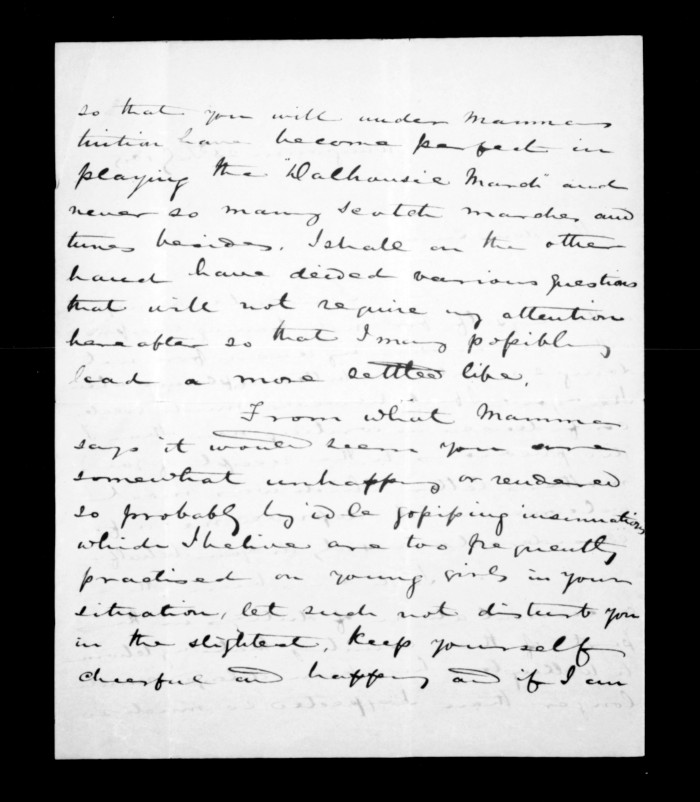 so that you will under Mammas
tuition have become perfect in
playing the "Dalhousie March" and
never so many Scotch marches and
tunes besides. I shall on the other
hand have decided various questions
that will not require my attention
hereafter so that I may possibly
lead a more settled life.
From what Mamma
says it would seem you are
somewhat unhappy or rendered
so probably by idle gossiping insinuations
which I believe are too frequently
practised on young girls in your
situation, let such not disturb you
in the slightest, keep yourself
cheerful and happy and if I am